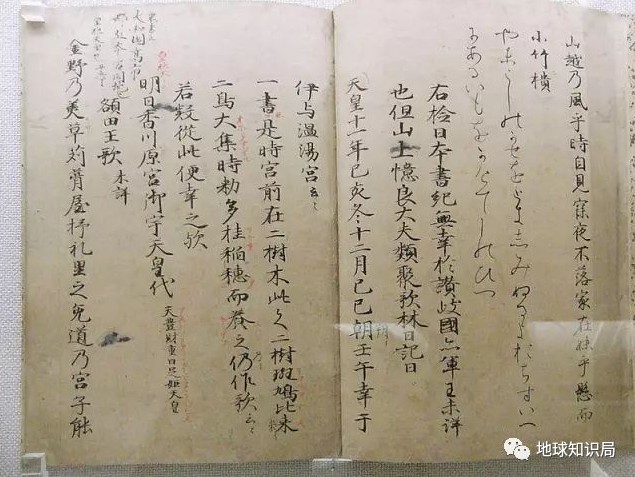 山越乃風乎時自見寐夜不落家在妹乎懸而
小竹樻
やまこしのかせをときしみぬるよおちすいへ
にあるいもをかけてしのひつ
右撿日本書紀無幸於讃岐國亦軍王未詳
也但山上憶良大夫類聚歌林曰記曰
天皇十一年己亥冬十二月己巳朔壬午幸于
伊与温湯宮云々
一書是時宮前在二樹木此之二樹斑鳩比米
二鳥大集時勅多桂稲穗而養之仍作歌云々
若疑從此便幸之歟
明日香川原宮御宇天皇代 天豊財重日足姫天皇
額田王歌 未詳
金野乃美草苅葺屋杼礼里之兎道乃宮子能
地球知识局